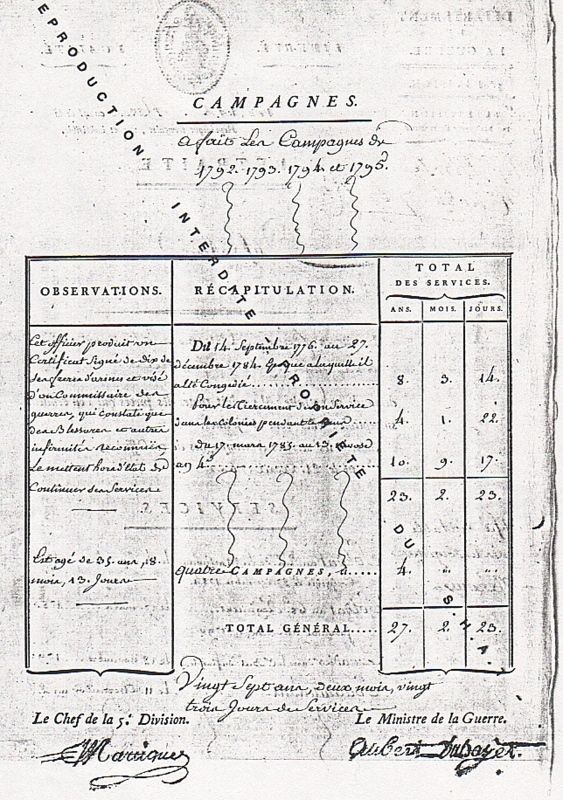 REPRODUCTION INTERDITE PROPRIETE DU S.H.A.
CAMPAGNES.
a fait les Campagnes de
1792. 1793. 1794. et 1795.
OBSERVATIONS.
RÉCAPITULATION.
TOTAL
DES SERVICES.
ANS. MOIS. JOURS.
Cet officier produit un
Certificat signé de dix de
ses freres d'armes et visé
d'un Commissaire des
guerres, qui constate que
des Blessures et autres
infirmités reconnues,
Le mettent hors d'état de
Continuer ses Services
Est agé de 35. ans, 18.
mois, 13. Jours
Du 14. Septembre 1776. au 27.
décembre 1784. Epoque a laquelle il
a été Congedié 8. 3. 14.
Pour le tiercement de son Service
dans les Colonies pendant le 4. 1. 22.
du 17. mars 1785. au 13.
an 4. 10. 9. 17.
23. 2. 23.
quatre CAMPAGNES, 4. " "
TOTAL GÉNÉRAL..... 27. 2. 23.
Vingt Sept ans, deux mois, vingt
trois Jours de Services
Le Chef de la 5.e Division.
Le Ministre de la Guerre.
Aubert Dubayet.